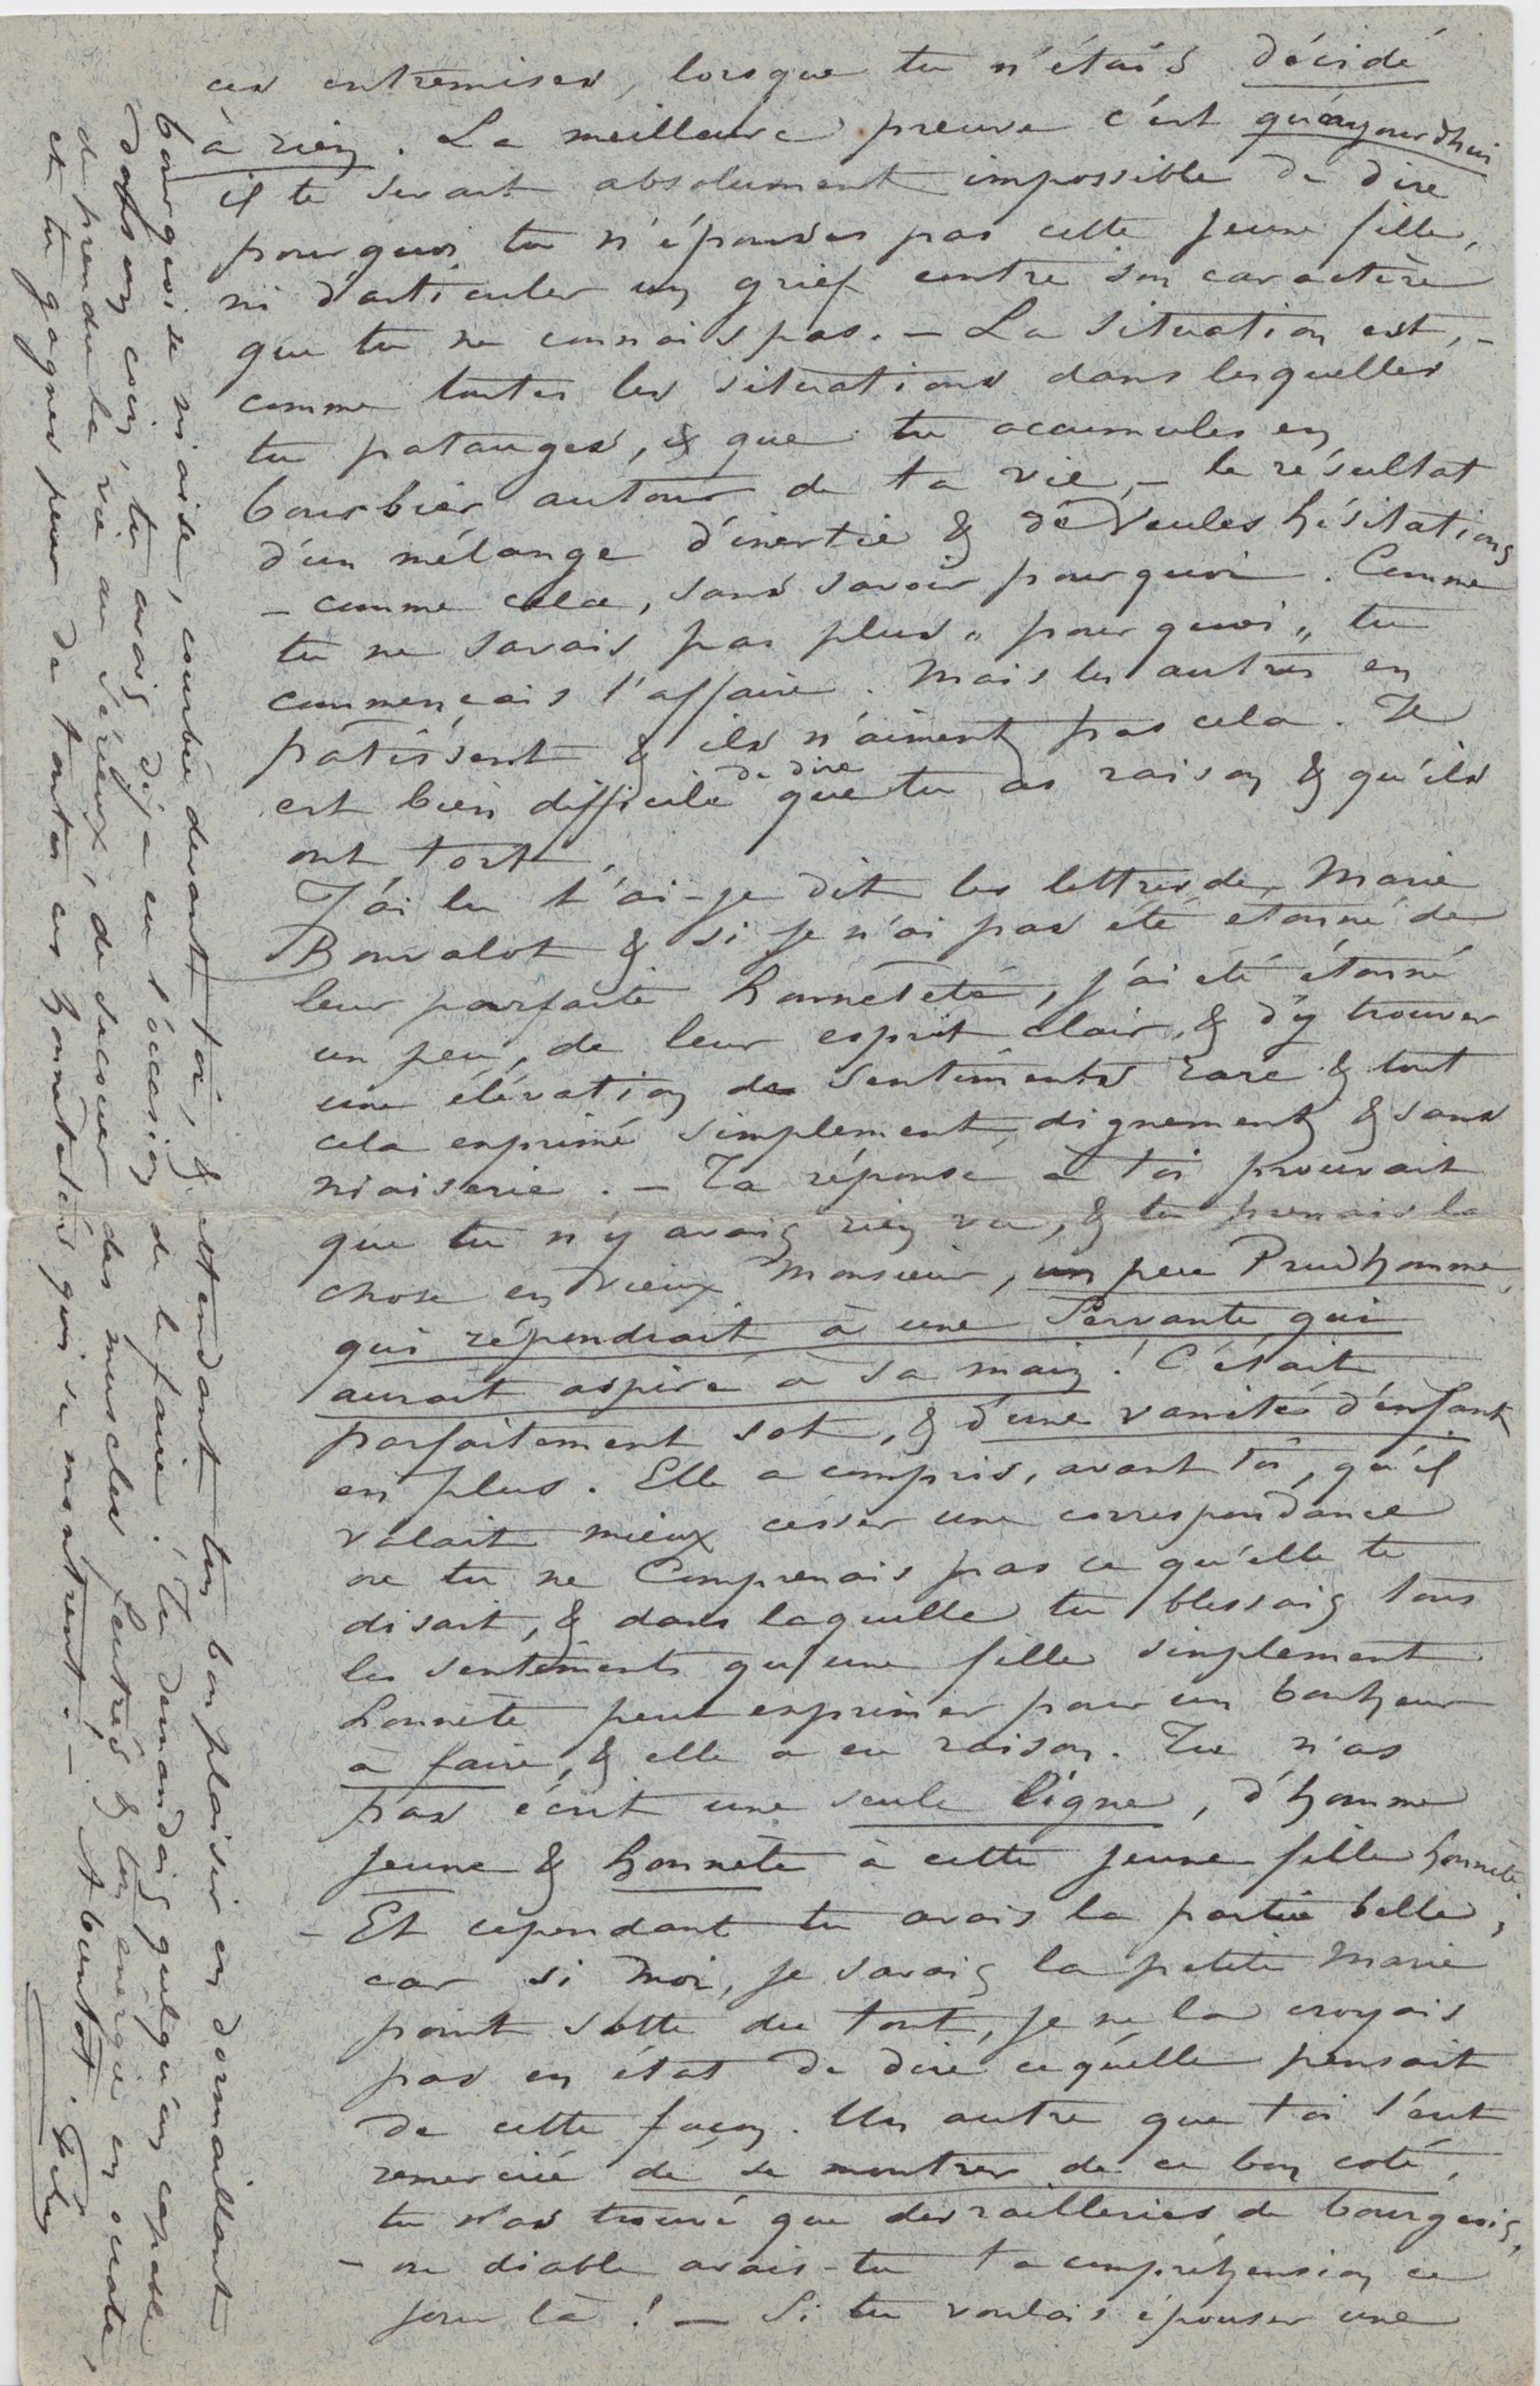 ces entremises, lorsque tu n'étais décidé
à rien. La meilleure preuve c'est qu'aujourdhui
il te serait absolument impossible de dire
pourquoi tu n'épouses pas cette jeune fille,
ni d'articuler un grief contre son caractère
que tu ne connais pas. – La situation est, –
comme toutes les situations dans lesquelles
tu patauges, & que tu accumules en
bourbier autour de ta vie, – le résultat
d'un mélange d'inertie & de veules hésitations
– comme cela, sans savoir pourquoi. Comme
tu ne savais pas plus „ pourquoi „ tu
commençais l'affaire. Mais les autres en
patissent & ils n'aiment pas cela. Il
est bien difficile de dire que tu as raison & qu'ils
ont tort.
J'ai lu t'ai-je dit les lettres de Marie
Bouvalot & si je n'ai pas été étonné de
leur parfaite honnêteté, j'ai été étonné
un peu, de leur esprit clair, & d'y trouver
une élévation de sentiments rare & tout
cela exprimé simplement, dignement & sans
niaiserie. – Ta réponse à toi prouvait
que tu n'y avais rien vu, & tu prenais la
chose en vieux Monsieur, un peu Prudhomme,
qui répondrait à une Servante qui
aurait aspiré à sa main ! C'était
parfaitement sot, & d'une vanité d'enfant
en plus. Elle a compris, avant toi, qu'il
valait mieux cesser une correspondance
ou tu ne Comprenais pas ce qu'elle te
disait, & dans laquelle tu blessais tous
les sentiments qu'une fille simplement
honnête peut exprimer pour un bonheur
à faire, & elle a eu raison. Tu n'as
pas écrit une seule ligne, d'homme
jeune & honnête à cette jeune fille honnête.
– Et cependant tu avais la partie belle,
car si moi, je savais la petite Marie
point sotte du tout, je ne la croyais
pas en état de dire ce qu'elle pensait
de cette façon. Un autre que toi l'eut
remercié de se montrer de ce bon coté,
tu n'as trouvé que des railleries de bourgeois,
– ou diable avais-tu ta compréhension ce
jour là ! – Si tu voulais épouser une
bourgeoise niaise, courbée devant toi, & attendant ton bon plaisir en dormaillant
dans un coin, tu avais déjà eu l'occasion de le faire. Tu demandais quelqu'un capable
de prendre la vie au sérieux, de secouer des muscles feutrés & ton énergie en ouate,
et tu gagnes peur de toutes ces qui se montrent. – A bientôt. Fély